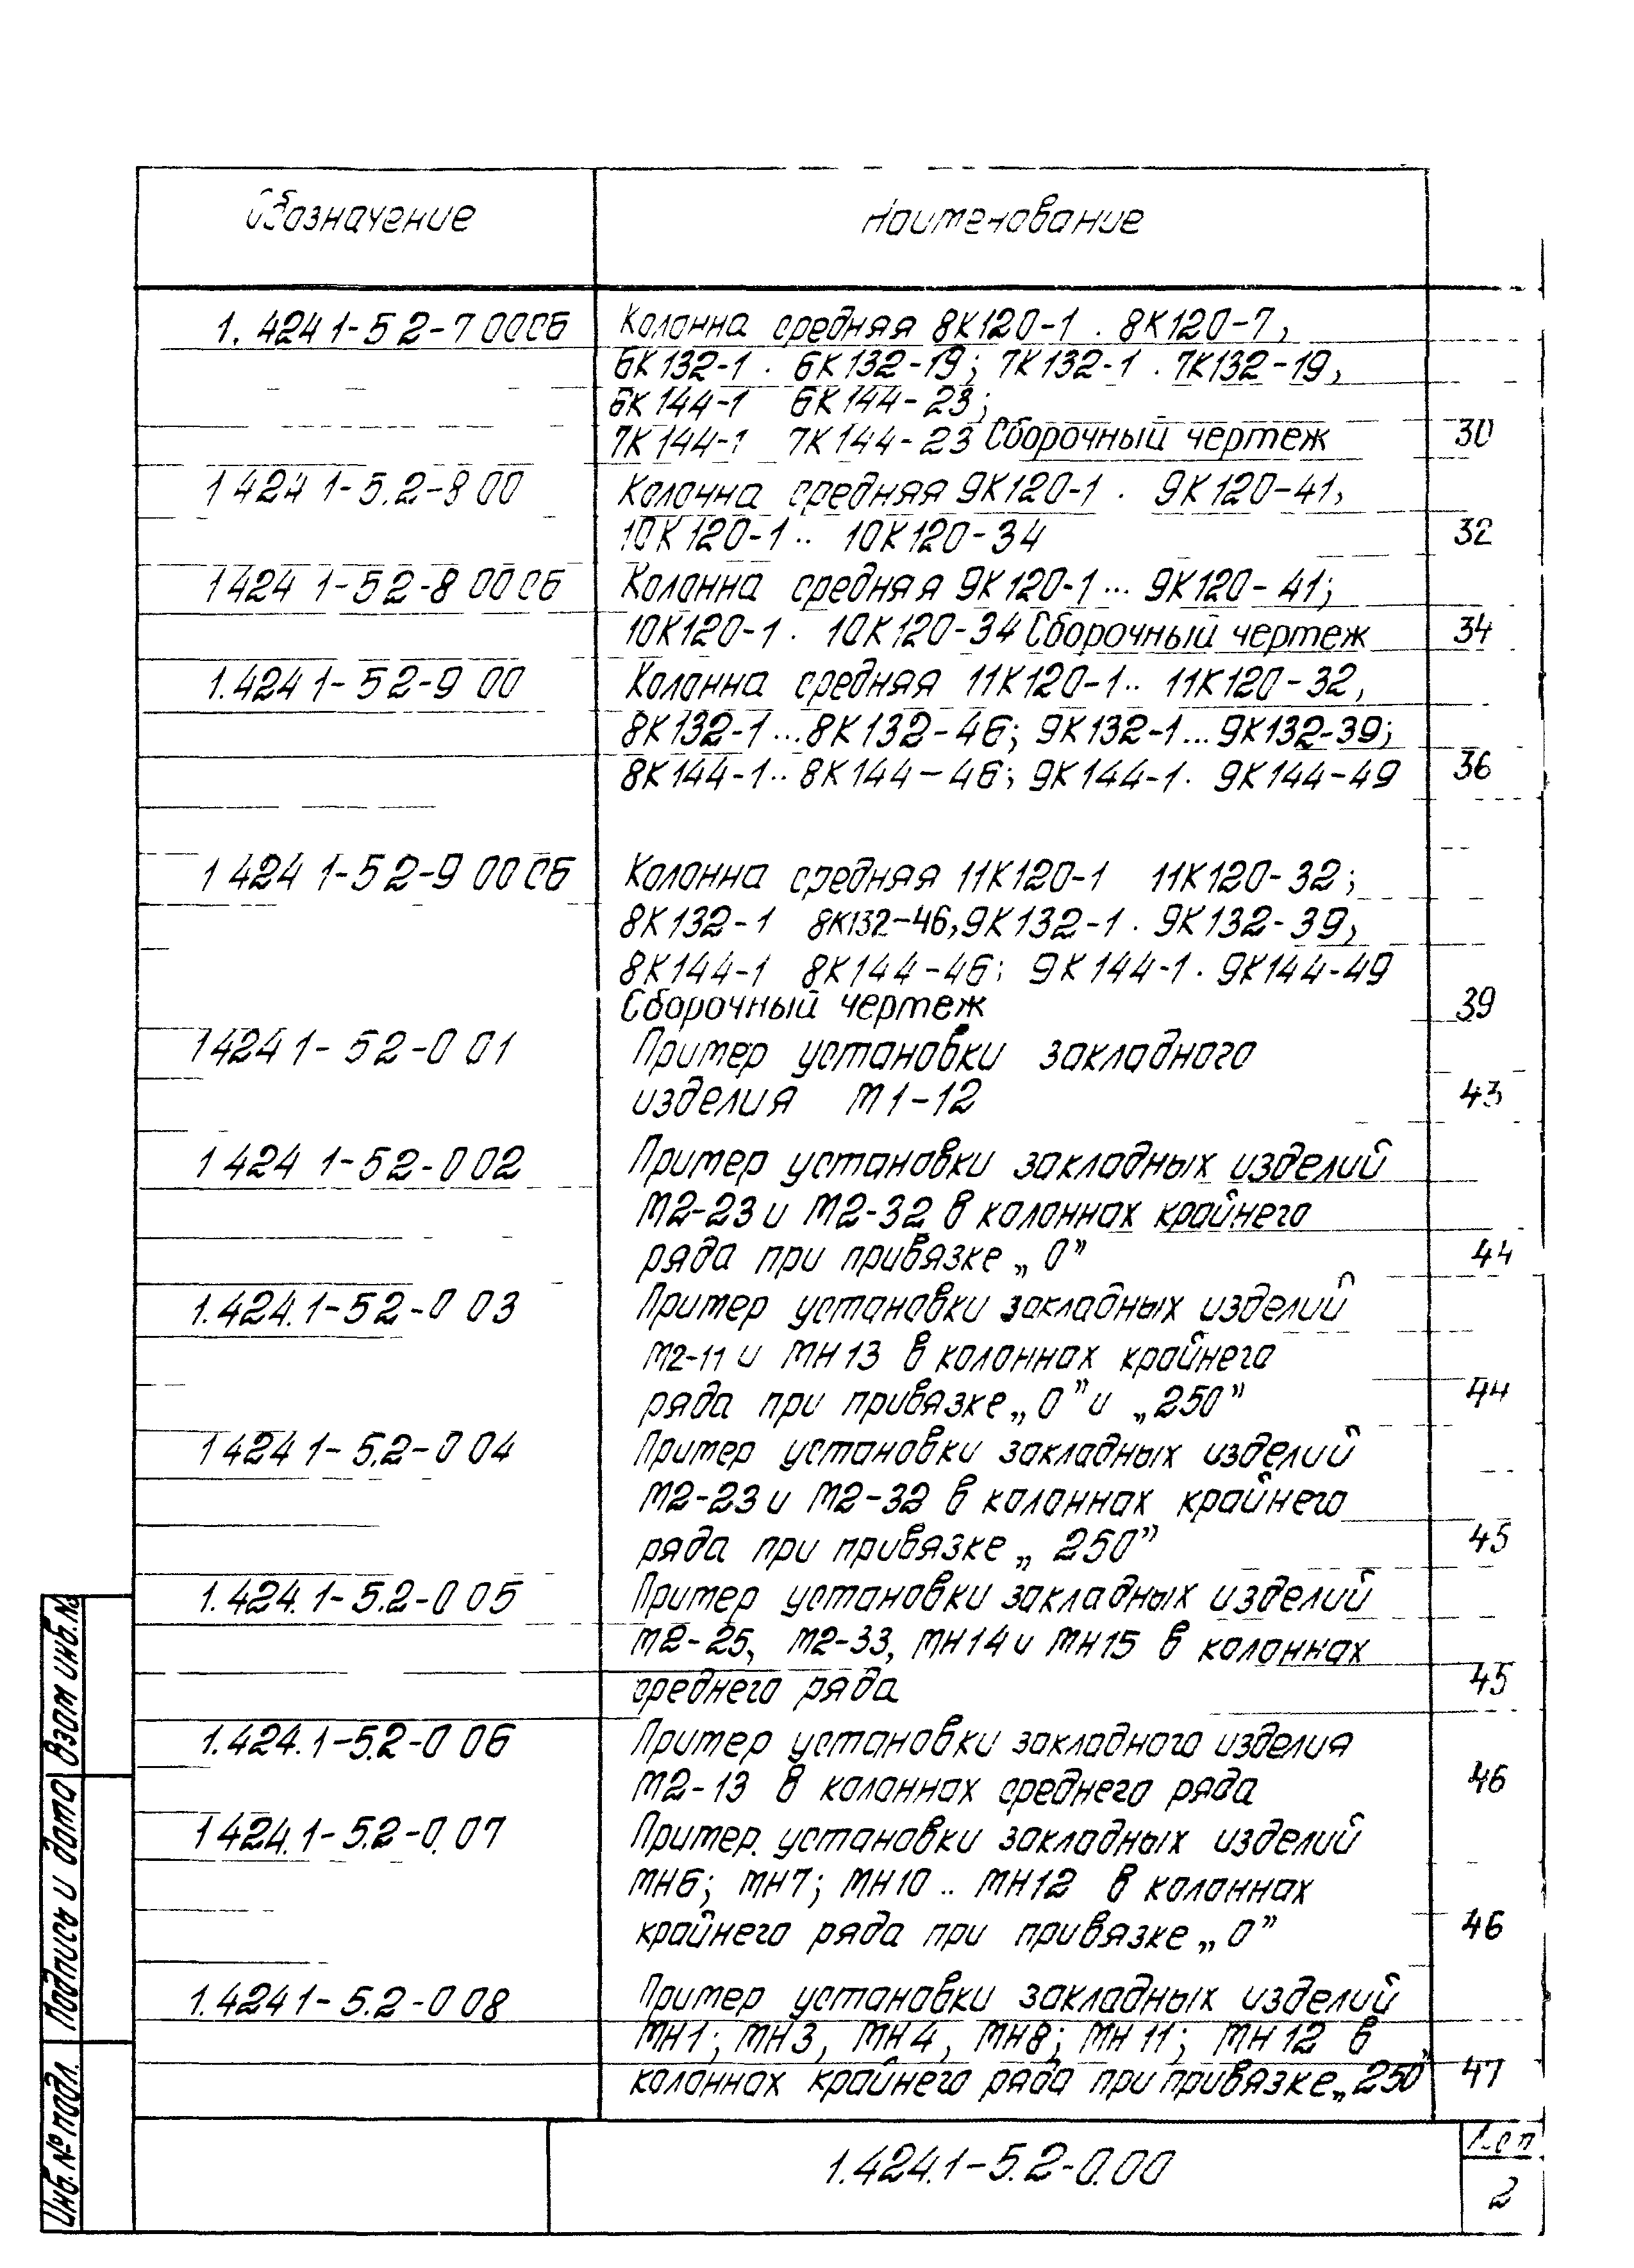 Обозначение Наименование
1. 424 1-5 2-7 00СБ Колонна средняя 8К120-1 . 8К120-7,
6К132-1 . 6К132-19; 7К132-1 . 7К132-19,
6К144-1 6К144-23;
7К144-1 7К144-23 Сборочный чертеж 30
1 424 1-5.2-8 00 Колонна средняя 9К120-1 . 9К120-41,
10К120-1 .. 10К120-34 32
1 424 1-5 2-8 00 СБ Колонна средняя 9К120-1 ... 9К120-41;
10К120-1 . 10К120-34 Сборочный чертеж 34
1.424 1-5 2-9 00 Колонна средняя 11К120-1 .. 11К120-32,
8К132-1 ... 8К132-46; 9К132-1 ... 9К132-39;
8К144-1 .. 8К144-46; 9К144-1 . 9К144-49 36
1 424 1-5 2-9 00 СБ Колонна средняя 11К120-1 11К120-32;
8К132-1 8К132-46, 9К132-1 . 9К132-39,
8К144-1 8К144-46; 9К144-1 . 9К144-49
Сборочный чертеж 39
1 424 1-5 2-0 01 Пример установки закладного
изделия М1-12 43
1 424 1-5 2-0 02 Пример установки закладных изделий
М2-23 и М2-32 в колоннах крайнего
ряда при привязке „0” 44
1.424.1-5 2-0 03 Пример установки закладных изделий
М2-11 и МН13 в колоннах крайнего
ряда при привязке „0” и „250” 44
1 424 1-5.2-0 04 Пример установки закладных изделий
М2-23 и М2-32 в колоннах крайнего
ряда при привязке „250” 45
1.424.1-5.2-0 05 Пример установки закладных изделий
М2-25, М2-33, МН14 и МН15 в колоннах
среднего ряда 45
1.424.1-5.2-0 06 Пример установки закладного изделия
М2-13 в колоннах среднего ряда 46
1 424.1-5.2-0.07 Пример. установки закладных изделий
МН6; МН7; МН10 .. МН12 в колоннах
крайнего ряда при привязке „0” 46
1.424 1-5.2-0 08 Пример установки закладных изделий
МН1; МН3, МН4, МН8; МН11; МН12 в
колоннах крайнего ряда при привязке „250” 47
1.424.1-5.2-0.00
Лист
2
Инв. № подл.
Подпись и дата
Взам инв. №